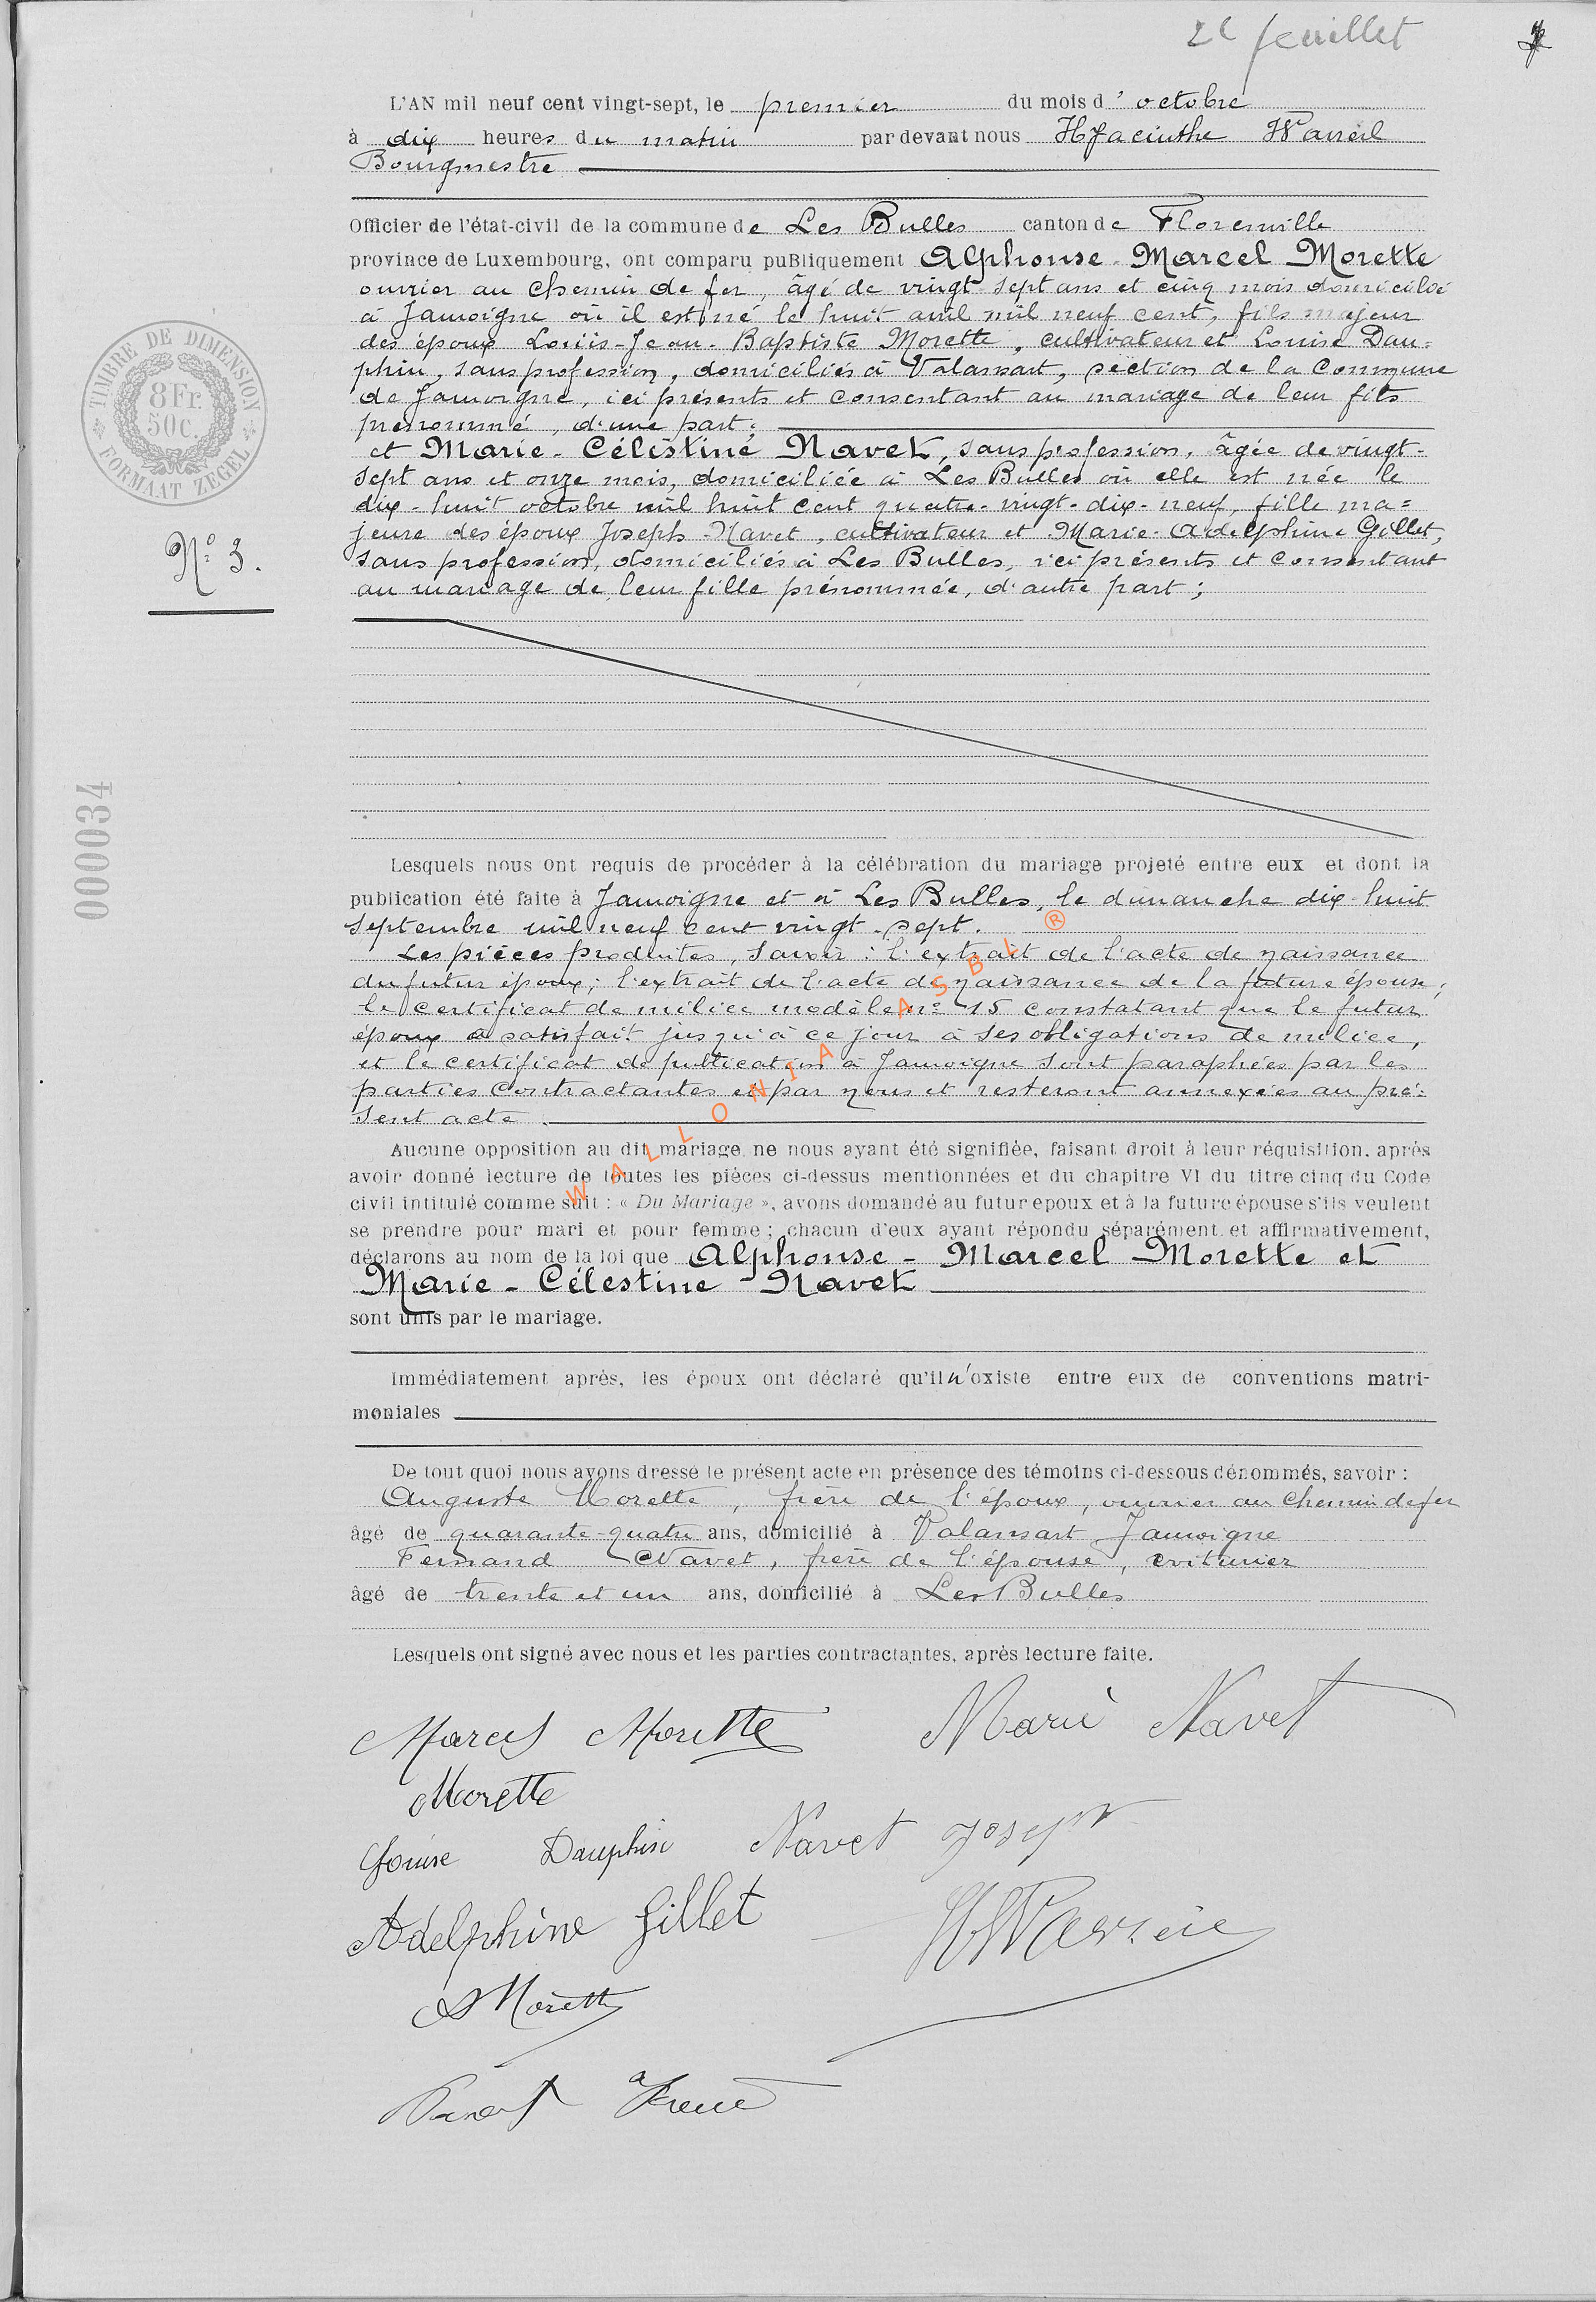 2e feuillet
L'AN mil neuf cent vingt-sept, le premier du mois d'octobre
à dix heures du matin par devant nous Hyacinthe
Bourgmestre
Officier de l'état-civil de la commune de Les Bulles canton de Florenville
province de Luxembourg, ont comparu publiquement Alphonse-Marcel Morette
ouvrier au chemin de fer, âgé de vingt-sept ans et cinq mois domicilié
à Jamoigne où il est né le huit avril mil neuf cent, fils majeur
des époux Louis-Jean-Baptiste Morette, cultivateur et Louise Dau=
phin, sans profession, domiciliés à Valansart, section de la Commune
de Jamoigne, ici présents et consentant au mariage de leur fils
prénommé, d'une part;
et Marie-Célestine Navet, sans profession, âgée de vingt-
sept ans et onze mois, domiciliée à Les Bulles où elle est née le
dix-huit octobre mil huit cent quatre-vingt-dix-neuf, fille ma=
jeure des époux Joseph Navet, cultivateur et Marie-Adelphine Gillet,
sans profession, domiciliés à Les Bulles, ici présents et consentant
au mariage de leur fille prénommée, d'autre part;
TIMBRE DE DIMENSION
8 Fr.
50c.
FORMAAT ZEGEL
No 3.
000034
Lesquels nous ont requis de procéder à la célébration du mariage projeté entre eux et dont la
publication été faite à Jamoigne et à Les Bulles, le dimanche dix-huit
septembre mil neuf cent vingt-sept.
Les pièces produites, savoir : l'extrait de l'acte de naissance
du futur époux; l'extrait de l'acte de naissance de la future épouse;
le certificat de milice modèle no 15 constatant que le futur
époux a satisfait jusqu'à ce jour à ses obligations de milice,
et le certificat de publication à Jamoigne sont paraphées par les
parties contractantes et par nous et resteront annexées au pré=
sent acte.
Aucune opposition au dit mariage ne nous ayant été signifiée, faisant droit à leur réquisition, après
avoir donné lecture de toutes les pièces ci-dessus mentionnées et du chapitre VI du titre cinq du Code
civil intitulé comme suit : « Du Mariage », avons domandé au futur epoux et à la future épouse s'ils veulent
se prendre pour mari et pour femme; chacun d'eux ayant répondu séparément et affirmativement,
déclarons au nom de la loi que Alphonse-Marcel Morette et
Marie-Célestine Navet
sont unis par le mariage.
Immédiatement après, les époux ont déclaré qu'il n'oxiste entre eux de conventions matri-
moniales
De tout quoi nous avons dressé le présent acte en présence des témoins ci-dessous dénommés, savoir :
Auguste Morette, frère de l'époux, ouvrier au chemin de fer
âgé de quarante-quatre ans, domicilié à Valansart Jamoigne
Fernand Navet, frère de l'épouse,
âgé de trente et un ans, domicilié à Les Bulles
Lesquels ont signé avec nous et les parties contractantes, après lecture faite.
Marcel Morette Marie Navet
Morette
Louise Dauphin Navet Joseph
Adelphine Gillet
A Morette
WALLONIA ASBL ®